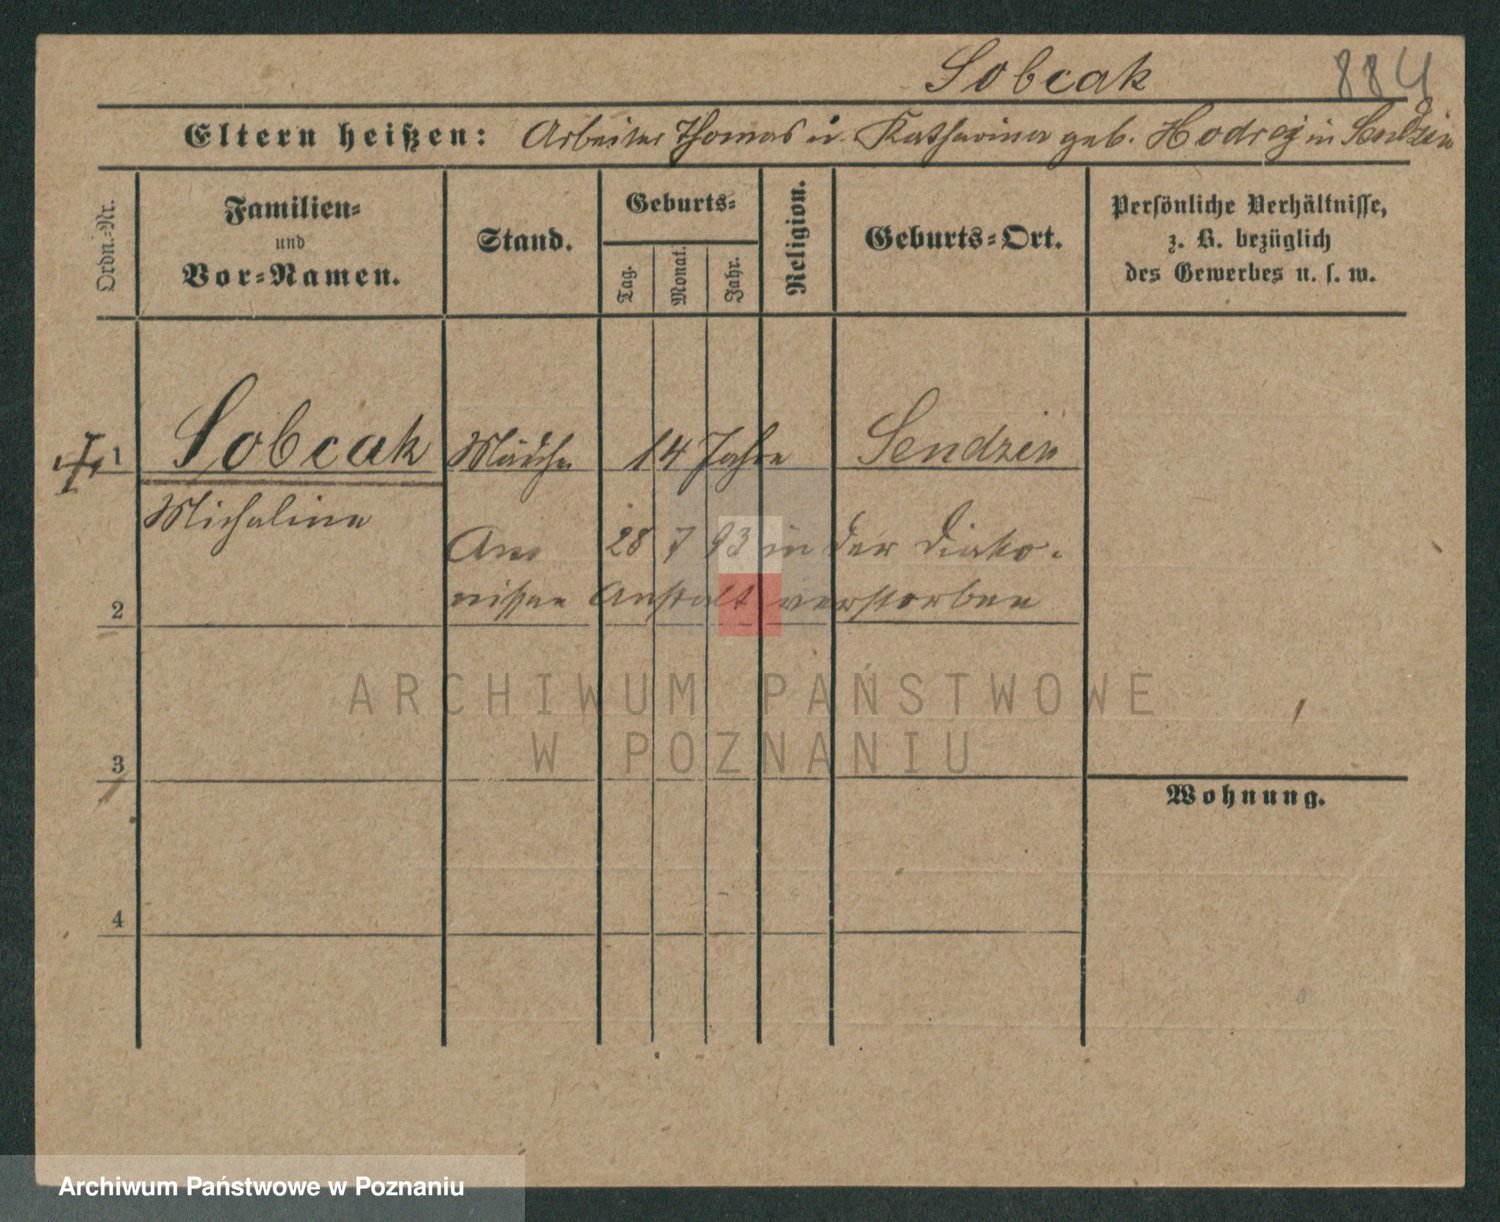 Sobcak 884
Eltern heißen: Arbeiter Thomas u. Katharina geb. Hodrej in Sendzin
Ordn.-Nr.
Familien-
und
Vor-Namen.
Stand.
Geburts-
Tag.
Monat.
Jahr.
Religion.
Geburts-Ort.
Persönliche Verhältnisse,
z. B. bezüglich
des Gewerbes u. s. w.
1 Sobcak Mädchen 14 Jahre Sendzin
Michalina
Am 28 7 93 in der Diako-
nissen Anstalt verstorben
2
ARCHIWUM PAŃSTWOWE
W POZNANIU
3
Wohnung.
4
Archiwum Państwowe w Poznaniu